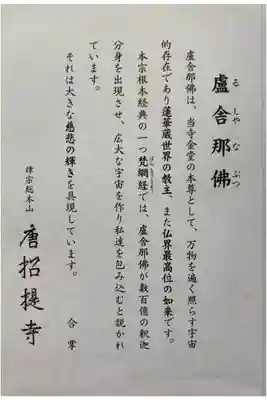 盧舎那佛
るしゃなぶつ
盧舎那佛は、当寺金堂の本尊として、万物を遍く照らす宇宙
的存在であり蓮華蔵世界の教主、また仏界最高位の如来です。
本宗根本経典の一つ梵網経では、盧舎那佛が数百億の釈迦
分身を出現させ、広大な宇宙を作り私達を包み込むと説かれ
ています。
それは大きな慈悲の輝きを具現しています。
合掌
律宗総本山
唐招提寺